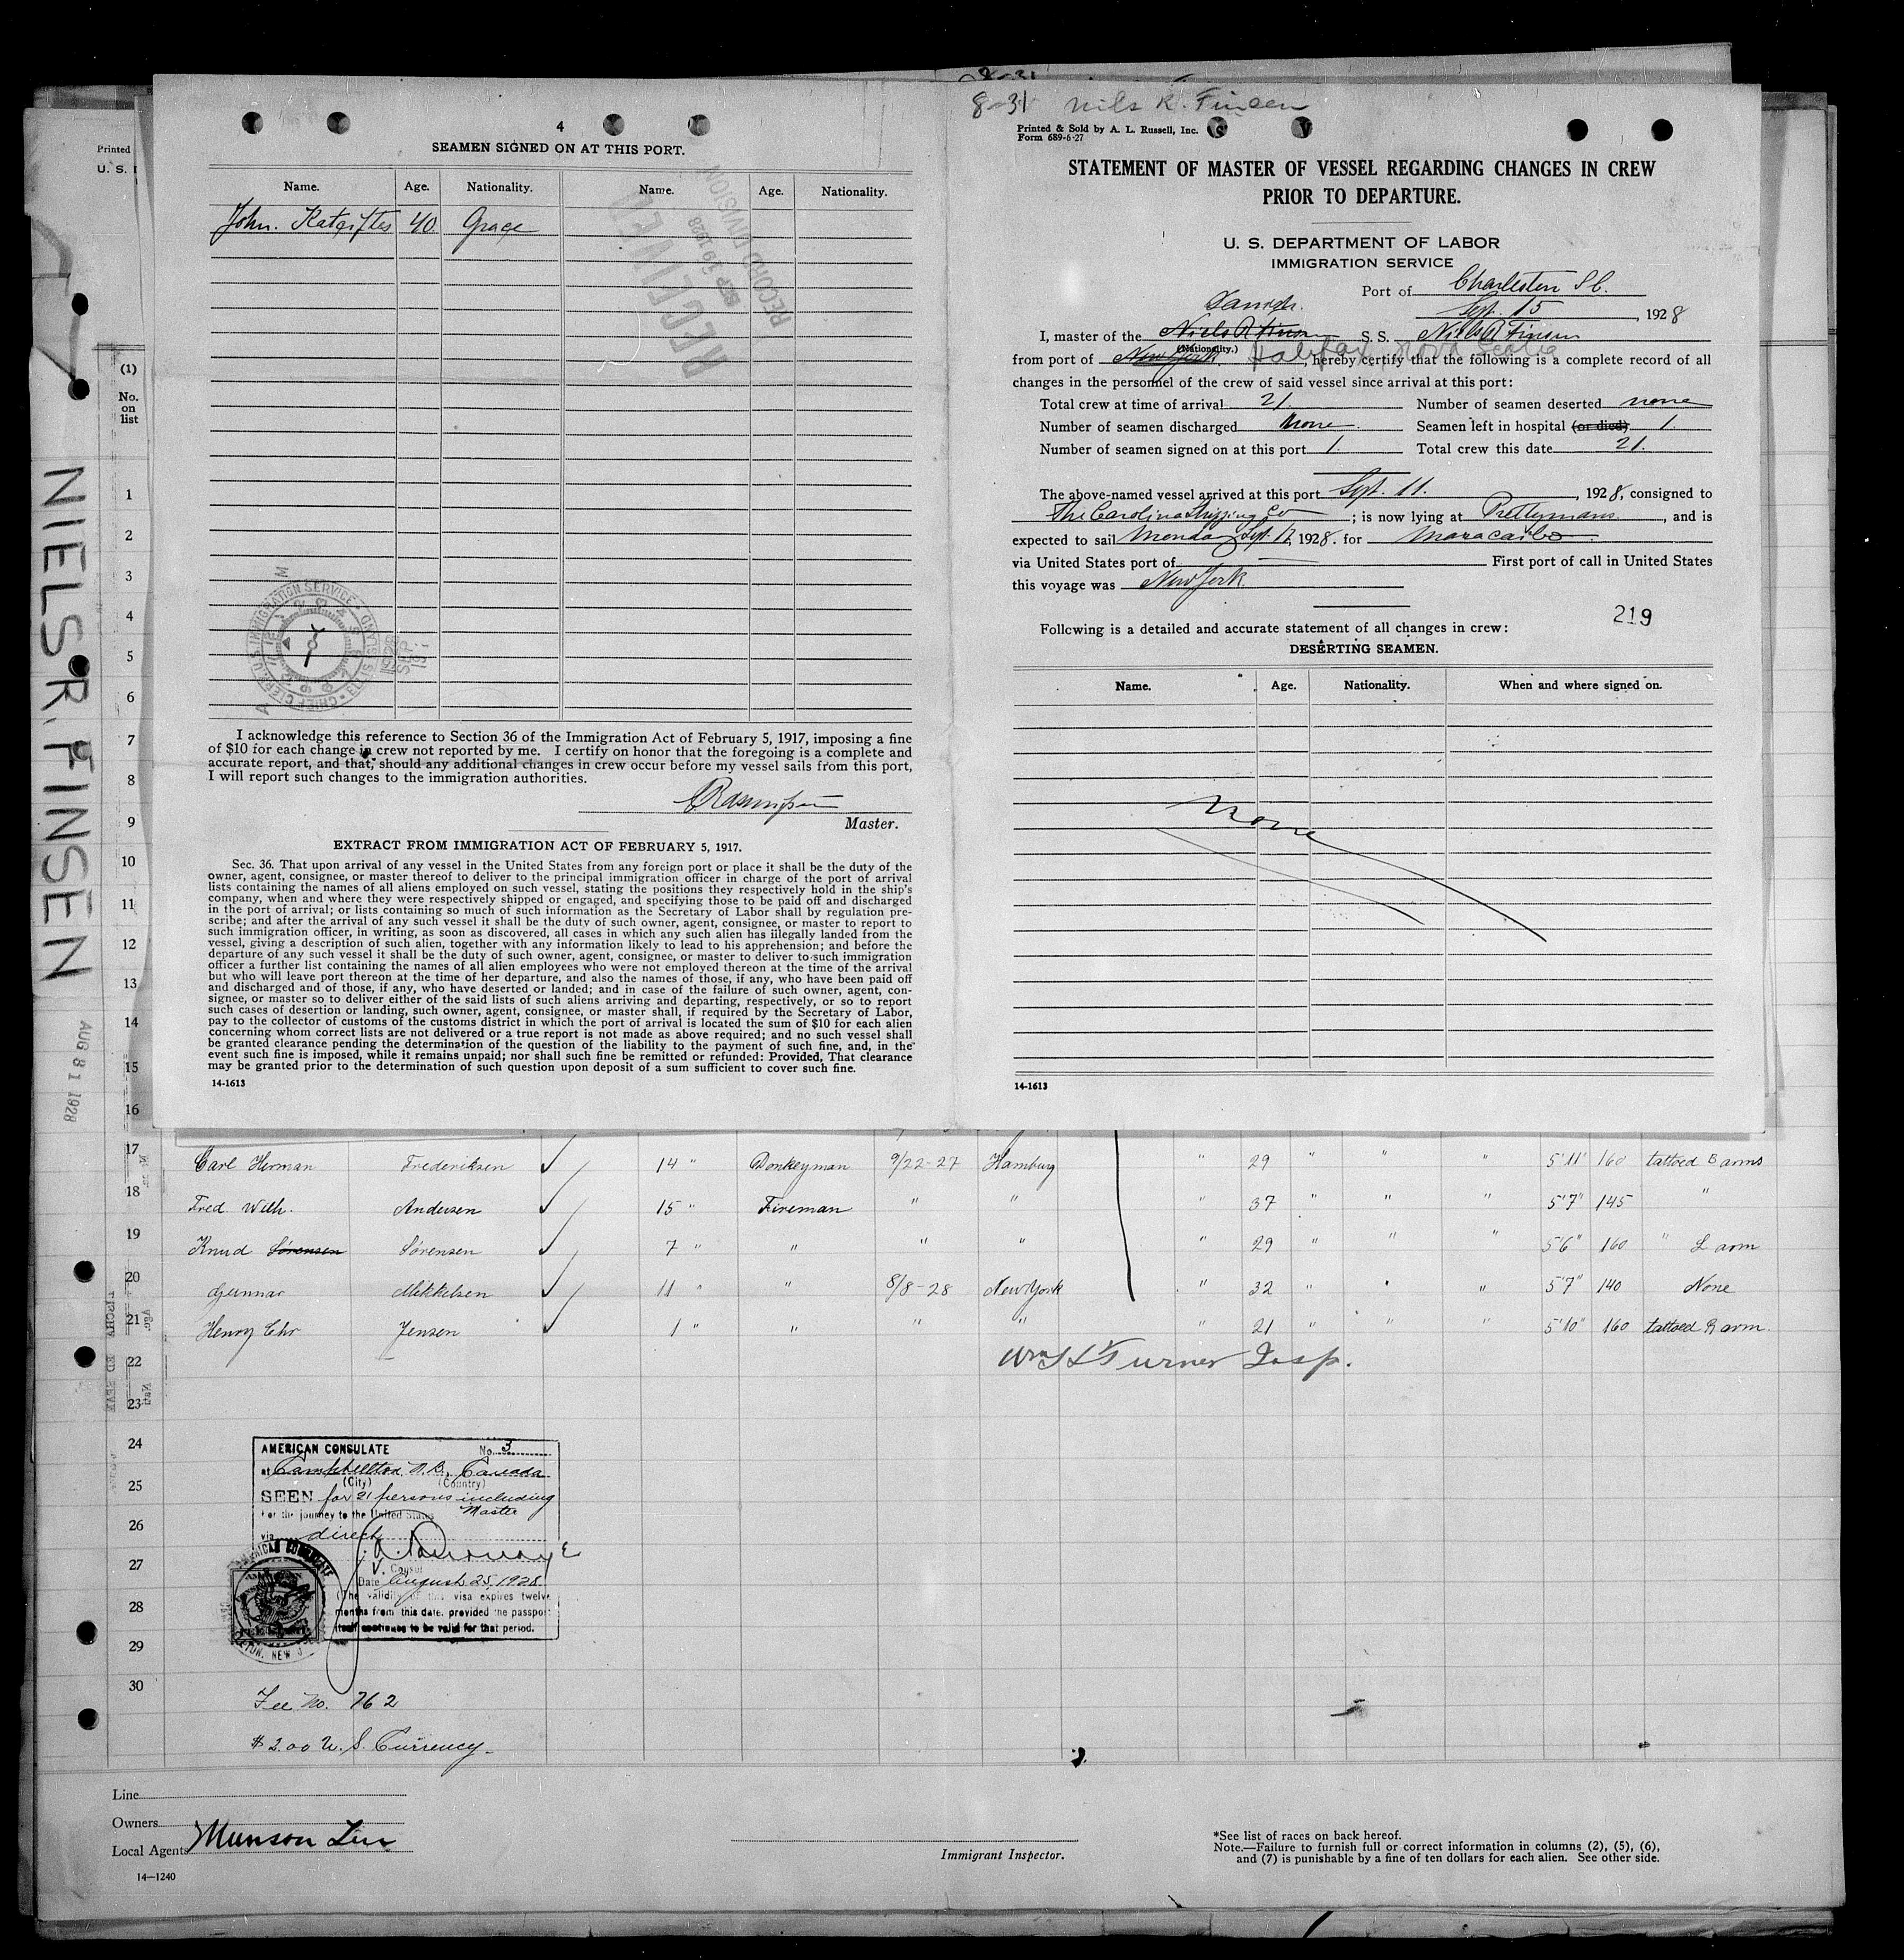 8-31 Nils R. Finsen
4
SEAMEN SIGNED ON AT THIS PORT.
Name. Age. Nationality. Name. Age. Nationality.
John. 40 Grace
RECEIVED
SEP 19 1928
RECORD DIVISION
CHIEF CLERK, U. S. IMMIGRATION SERVICE
I acknowledge this reference to Section 36 of the Immigration Act of February 5, 1917, imposing a fine
of $10 for each change in crew not reported by me. I certify on honor that the foregoing is a complete and
accurate report, and that, should any additional changes in crew occur before my vessel sails from this port,
I will report such changes to the immigration authorities.
Master.
EXTRACT FROM IMMIGRATION ACT OF FEBRUARY 5, 1917.
Sec. 36. That upon arrival of any vessel in the United States from any foreign port or place it shall be the duty of the
owner, agent, consignee, or master thereof to deliver to the principal immigration officer in charge of the port of arrival
lists containing the names of all aliens employed on such vessel, stating the positions they respectively hold in the ship's
company, when and where they were respectively shipped or engaged, and specifying those to be paid off and discharged
in the port of arrival; or lists containing so much of such information as the Secretary of Labor shall by regulation pre-
scribe; and after the arrival of any such vessel it shall be the duty of such owner, agent, consignee, or master to report to
such immigration officer, in writing, as soon as discovered, all cases in which any such alien has illegally landed from the
vessel, giving a description of such alien, together with any information likely to lead to his apprehension; and before the
departure of any such vessel it shall be the duty of such owner, agent, consignee, or master to deliver to such immigration
officer a further list containing the names of all alien employees who were not employed thereon at the time of the arrival
but who will leave port thereon at the time of her departure, and also the names of those, if any, who have been paid off
and discharged and of those, if any, who have deserted or landed; and in case of the failure of such owner, agent, con-
signee, or master so to deliver either of the said lists of such aliens arriving and departing, respectively, or so to report
such cases of desertion or landing, such owner, agent, consignee, or master shall, if required by the Secretary of Labor,
pay to the collector of customs of the customs district in which the port of arrival is located the sum of $10 for each alien
concerning whom correct lists are not delivered or a true report is not made as above required; and no such vessel shall
be granted clearance pending the determination of the question of the liability to the payment of such fine, and, in the
event such fine is imposed, while it remains unpaid; nor shall such fine be remitted or refunded: Provided, That clearance
may be granted prior to the determination of such question upon deposit of a sum sufficient to cover such fine.
14-1613
Printed & Sold by A. L. Russell, Inc.
Form 689-6-27
STATEMENT OF MASTER OF VESSEL REGARDING CHANGES IN CREW
PRIOR TO DEPARTURE.
U. S. DEPARTMENT OF LABOR
IMMIGRATION SERVICE
Port of Charleston S.C.
Sept. 15, 1928
Danish.
I, master of the Niels R Finsen S. S. Niels R Finsen
(Nationality.)
from port of New York. Halifax, Nova Scotia, hereby certify that the following is a complete record of all
changes in the personnel of the crew of said vessel since arrival at this port:
Total crew at time of arrival 21. Number of seamen deserted none
Number of seamen discharged None. Seamen left in hospital (or died) 1.
Number of seamen signed on at this port 1. Total crew this date 21.
The above-named vessel arrived at this port Sept. 11., 1928, consigned to
The Carolina Shipping Co; is now lying at Prettymans, and is
expected to sail Monday Sept. 17, 1928. for Maracaibo
via United States port of First port of call in United States
this voyage was New York.
219
Following is a detailed and accurate statement of all changes in crew:
DESERTING SEAMEN.
Name. Age. Nationality. When and where signed on.
None
14-1613
Printed
U. S.
(1)
No.
on
list
1
2
3
4
5
6
7
8
9
10
11
12
13
14
15
16
NIELS. R. FINSEN
AUG 31 1928
17 Carl Herman Frederiksen ✓ 14 " Donkeyman 9/22-27 Hamburg " 29 " " " 5'11" 160 tattoed B arms
18 Fred. Wilh. Andersen ✓ 15 " Fireman " " " 37 " " " 5'7" 145 "
19 Knud Sørensen Sørensen ✓ 7 " " " " " 29 " " " 5'6" 160 " L arm
20 Gunnar Mikkelsen ✓ 11 " " 8/8-28 New York " 32 " " " 5'7" 140 None
21 Henry Chr Jensen ✓ 1 " " " " " 21 " " " 5'10" 160 tattoed R arm.
22 Turner Insp.
23
24
25
26
27
28
29
30
AMERICAN CONSULATE No. 3
at Campbellton, N.B., Canada
(City) (Country)
SEEN for 21 persons including
For the journey to the United States Master
via direct
V. Consul
Date August 25, 1928.
(The validity of this visa expires twelve
months from this date, provided the passport
itself continues to be valid for that period.
Fee No. 762
$2.00 U. S. Currency.
Line
Owners
Local Agents Munson Line
14—1240
Immigrant Inspector.
*See list of races on back hereof.
Note.—Failure to furnish full or correct information in columns (2), (5), (6),
and (7) is punishable by a fine of ten dollars for each alien. See other side.